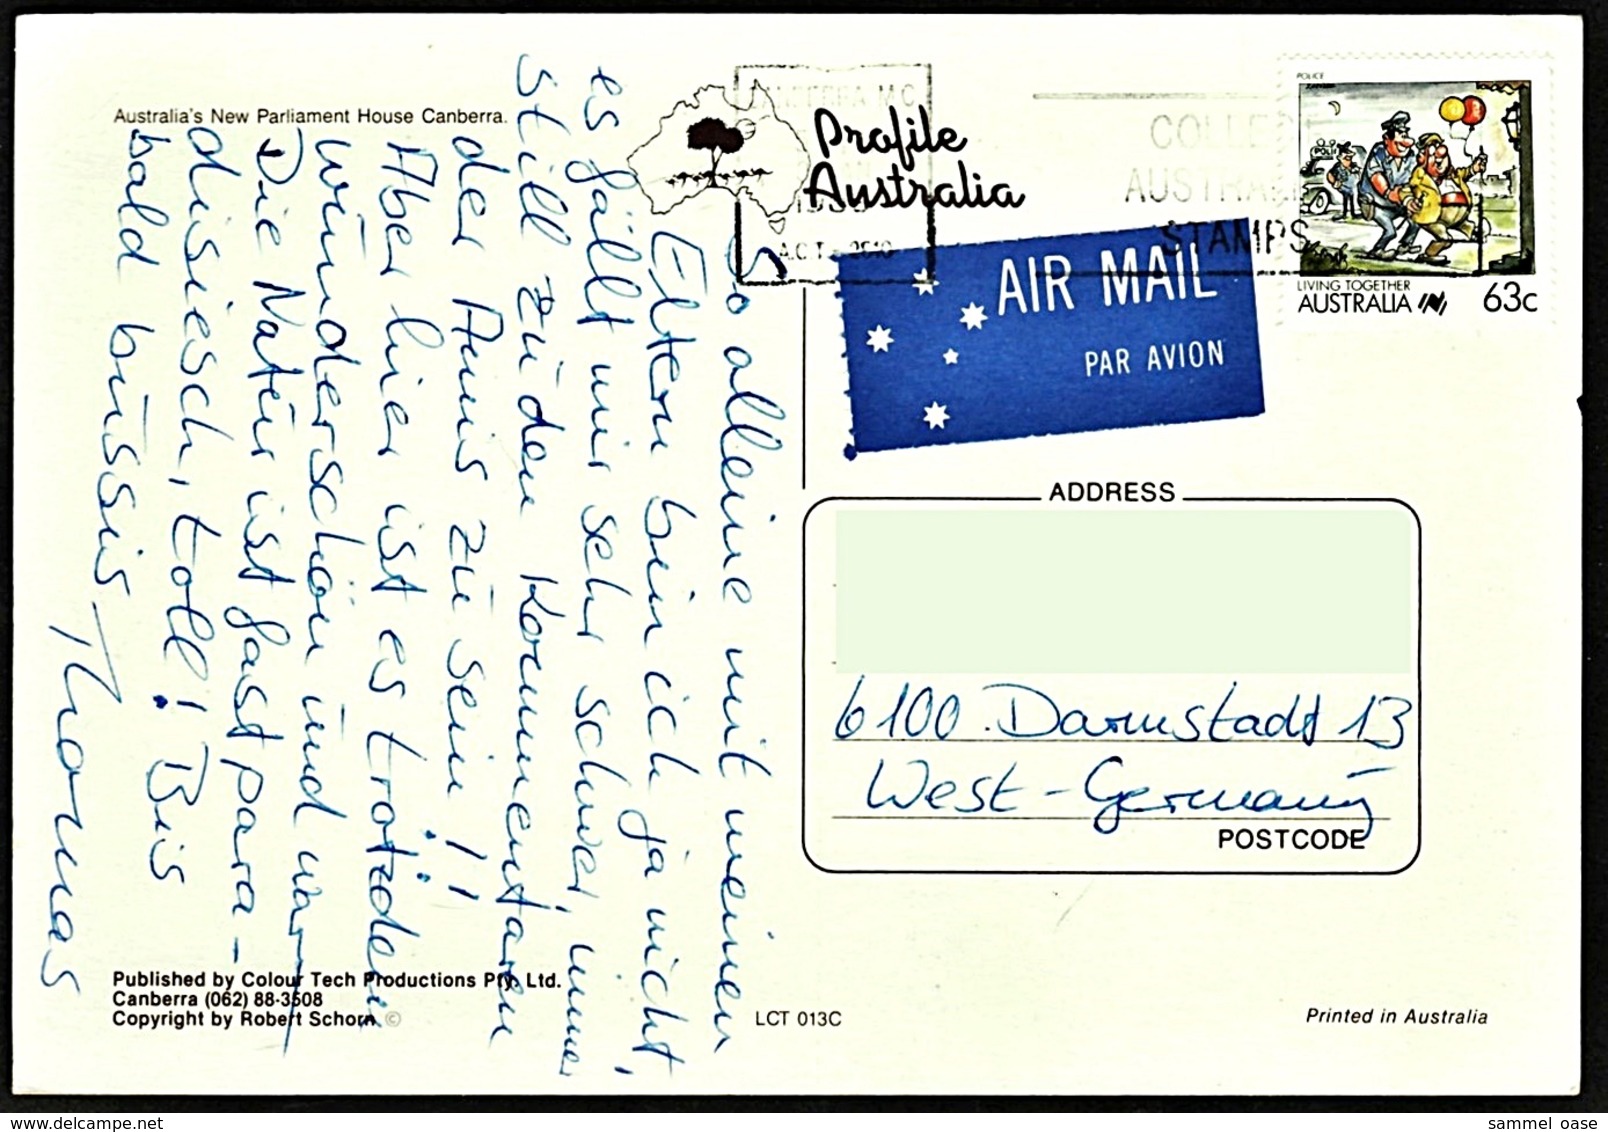 Australia's New Parliament House Canberra.
So alleine mit meinen
Eltern bin ich ja nicht,
es fällt mir sehr schwer, immer
still zu den Kommentaren
der Amis zu sein!!
Aber hier ist es trotzdem
wunderschön und warm
Die Natur ist fast para-
disiesch, toll! Bis
bald bussis
Thomas
Published by Colour Tech Productions Pty. Ltd.
Canberra (062) 88-3508
Copyright by Robert Schorn ©
LCT 013C
CANBERRA M.C.
A.C.T. - 2610
Profile
Australia
COLLECT
AUSTRALIAN
STAMPS
AIR MAIL
PAR AVION
POLICE
POLICE
LIVING TOGETHER
AUSTRALIA 63c
ADDRESS
6100 Darmstadt 13
West-Germany
POSTCODE
Printed in Australia
sammel_oase